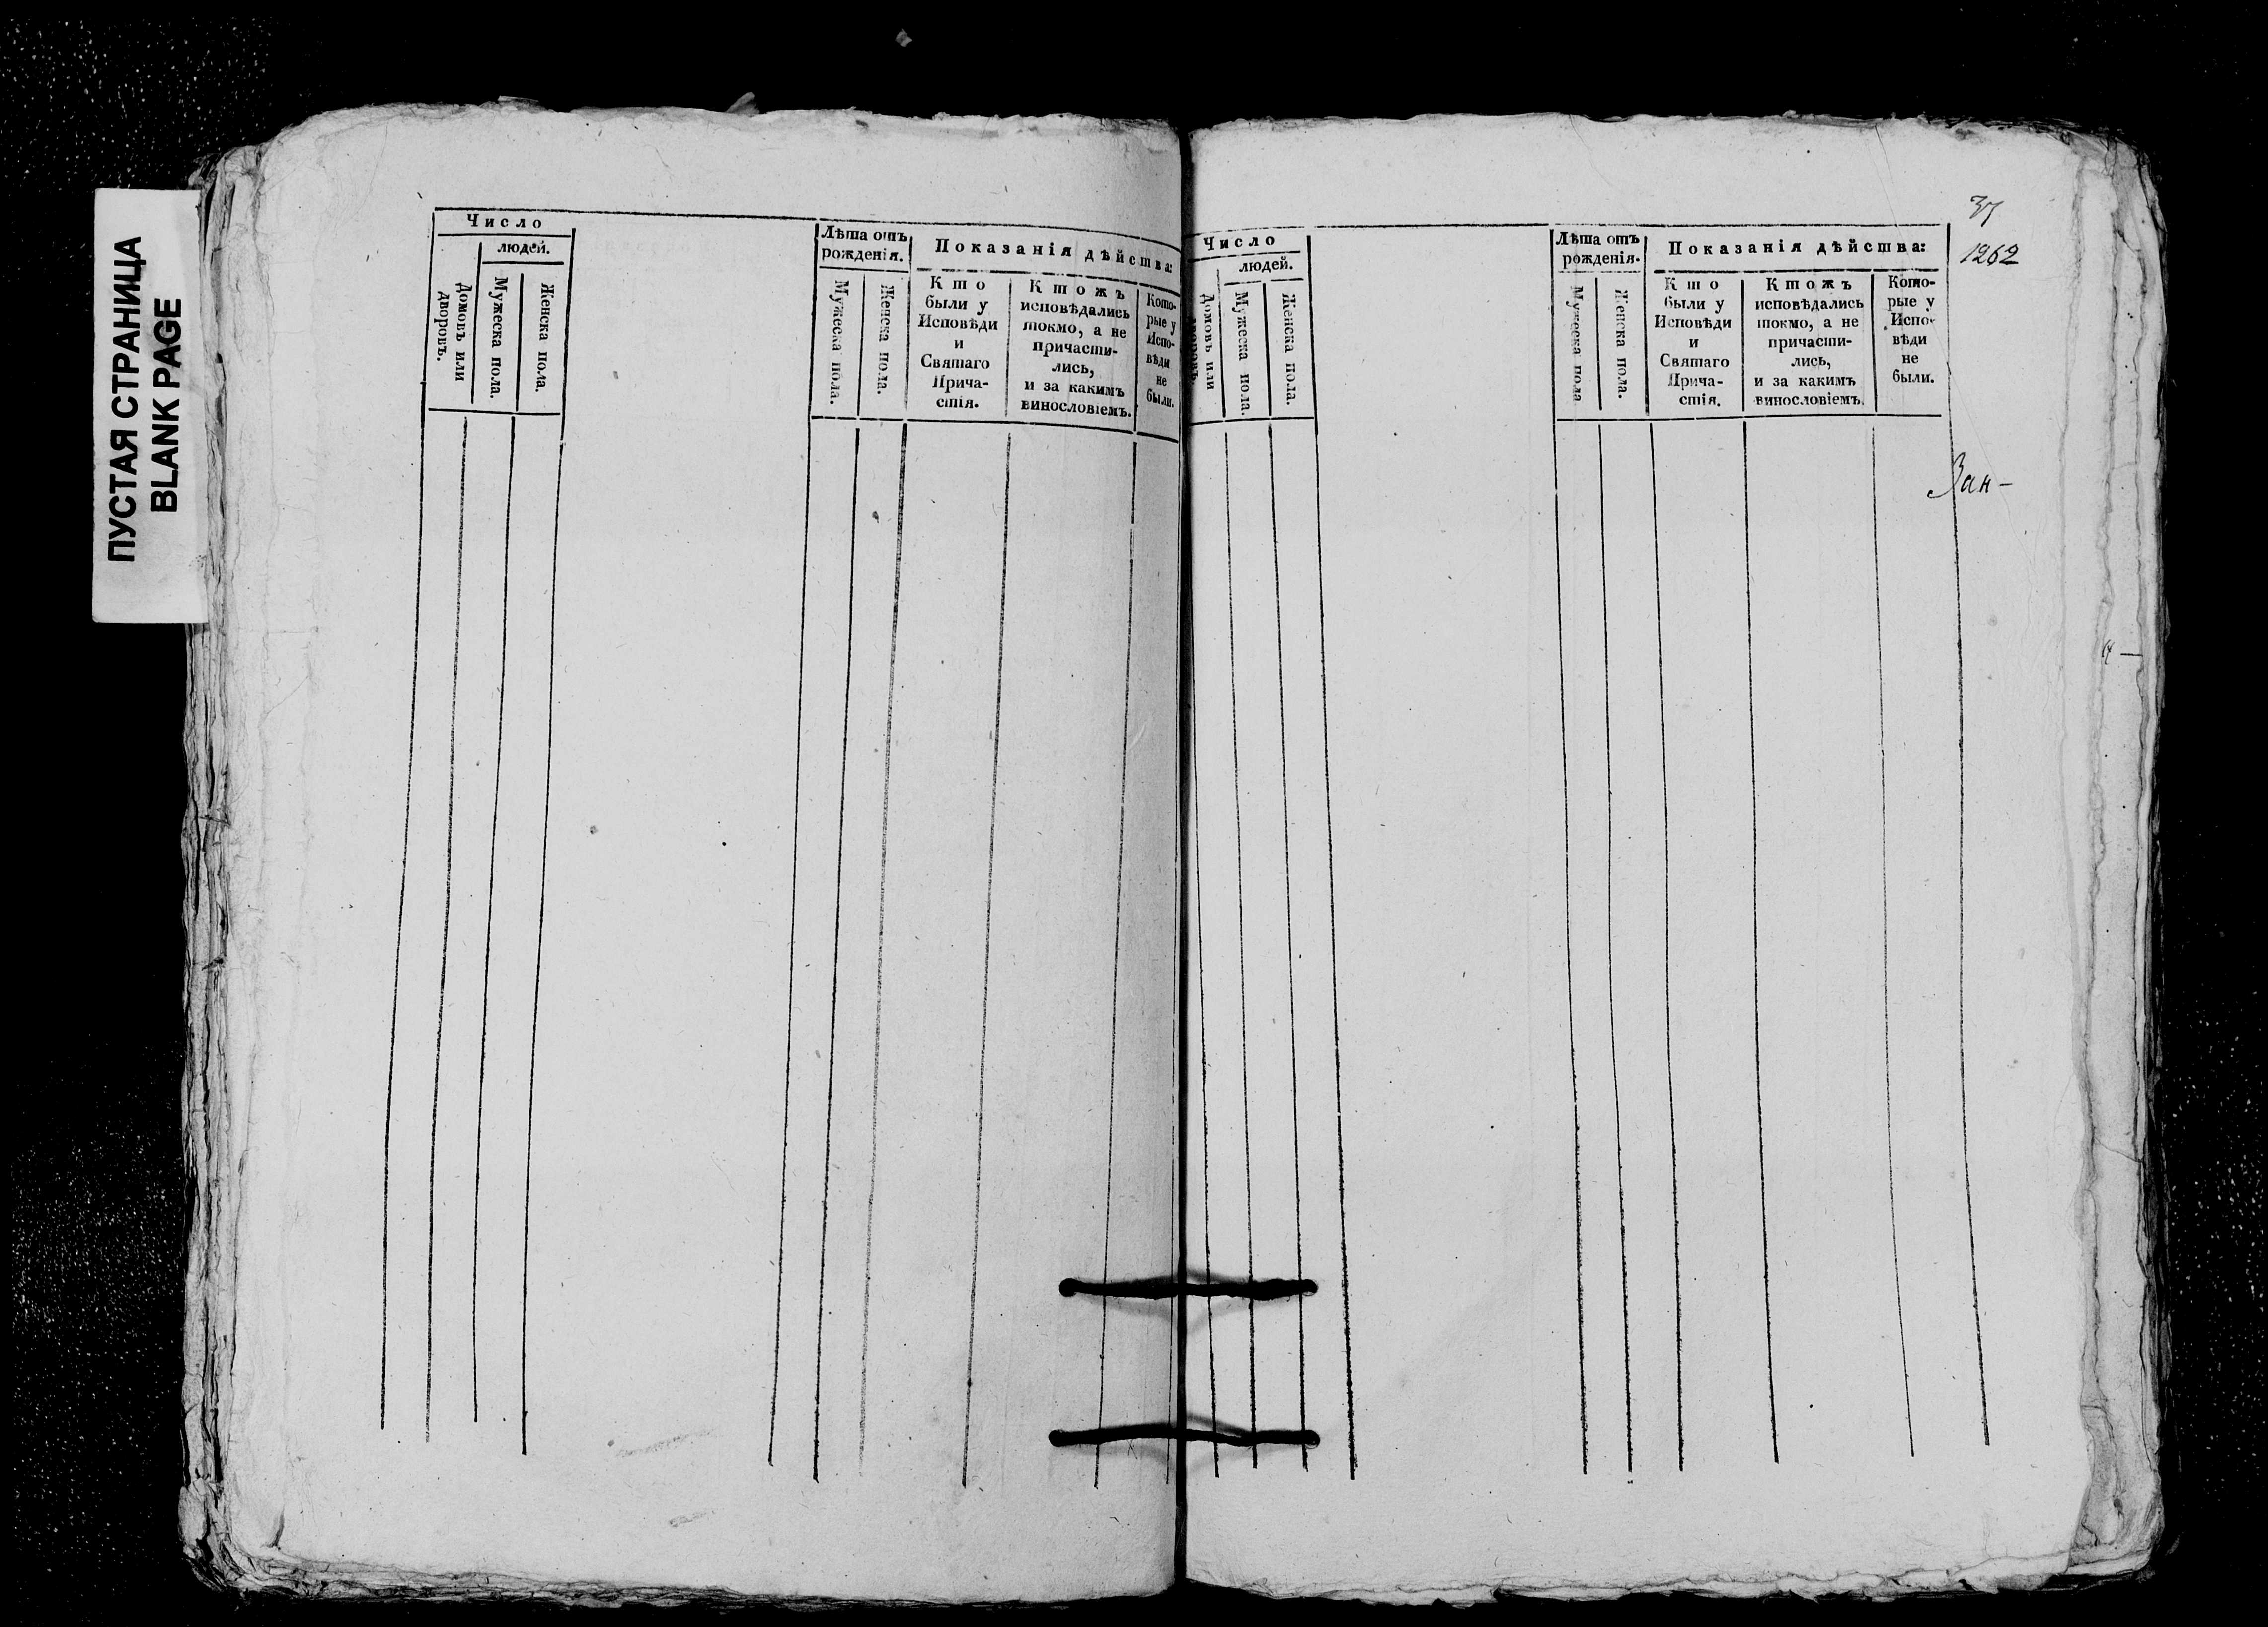 ПУСТАЯ СТРАНИЦА
BLANK PAGE
Число
людей.
Домовъ или
дворовъ.
Мужеска пола.
Женска пола.
Лѣта отъ
рожденія.
Мужеска пола.
Женска пола.
Показанія дѣйства:
Кто
были у
Исповѣди
и
Святаго
Прича-
стія.
Ктожъ
исповѣдались
токмо, а не
причасти-
лись,
и за какимъ
винословіемъ.
Кото-
рые у
Испо-
вѣди
не
были.
Число
людей.
Домовъ или
дворовъ.
Мужеска пола.
Женска пола.
Лѣта отъ
рожденія.
Мужеска пола
Женска пола.
Показанія дѣйства:
Кто
были у
Исповѣди
и
Святаго
Прича-
стія.
Ктожъ
исповѣдались
токмо, а не
причасти-
лись,
и за какимъ
винословіемъ.
Кото-
рые у
Испо-
вѣди
не
были.
1262
Зан-